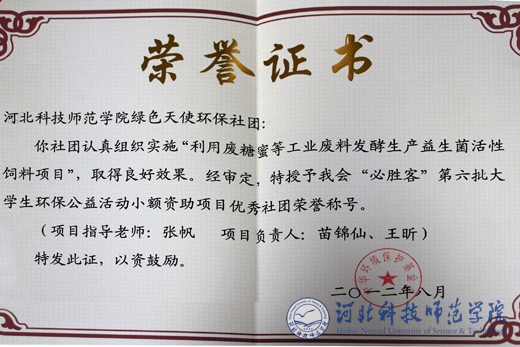 荣誉证书
河北科技师范学院绿色天使环保社团：
你社团认真组织实施“利用废糖蜜等工业废料发酵生产益生菌活性
饲料项目”，取得良好效果。经审定，特授予我会“必胜客”第六批大
学生环保公益活动小额资助项目优秀社团荣誉称号。
（项目指导老师：张帆 项目负责人：苗锦仙、王昕）
特发此证，以资鼓励。
中华环境保护基金会
二〇一二年八月
河北科技师范学院
Hebei Normal University of Science & Technology